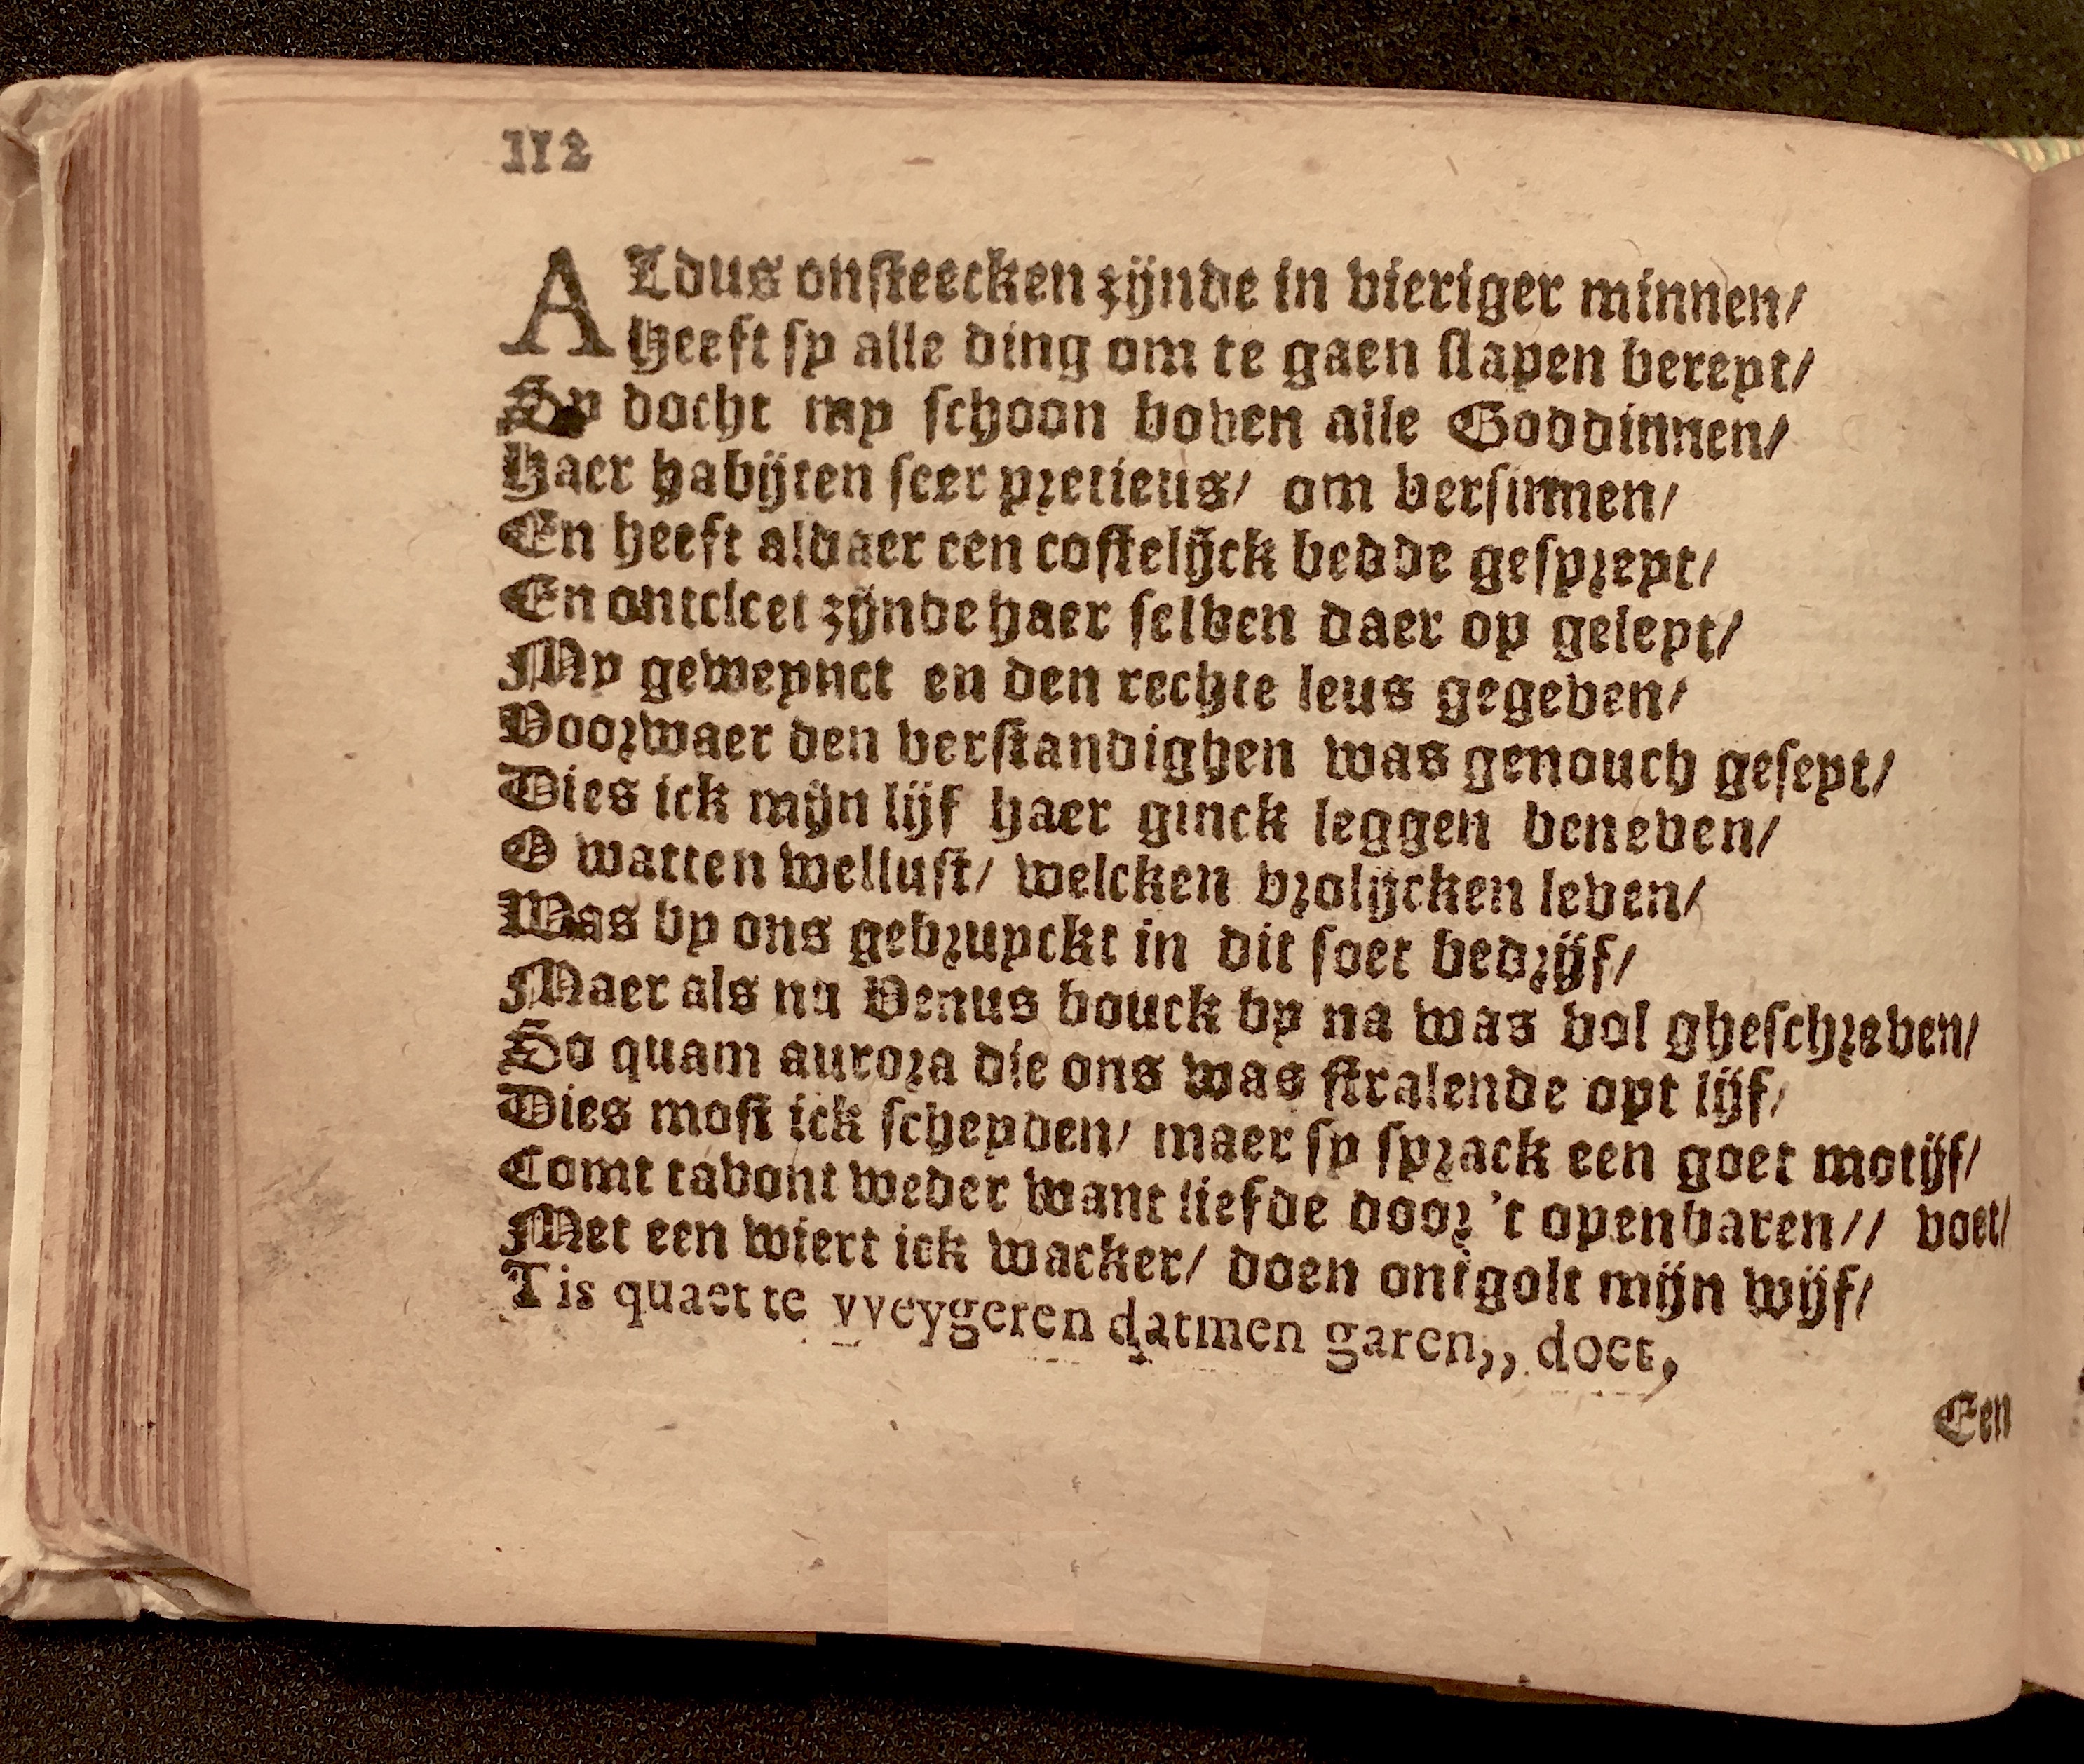 112
ALdus onsteecken zijnde in vieriger minnen/
Heeft sy alle ding om te gaen slapen bereyt/
Sy docht my schoon boven alle Goddinnen/
Haer habijten seer pretieus/ om versinnen/
En heeft aldaer een costelijck bedde gespreyt/
En ontcleet zijnde haer selven daer op geleyt/
My geweynct en den rechte leus gegeven/
Voorwaer den verstandighen was genouch geseyt/
Dies ick mijn lijf haer ginck leggen beneven/
O watten wellust/ welcken vrolijcken leven/
Was by ons gebruyckt in dit soet bedrijf/
Maer als nu Venus bouck by na was vol gheschreven/
So quam aurora die ons was stralende opt lijf/
Dies most ick scheyden/ maer sy sprack een goet motijf/
Comt tavont weder want liefde door 't openbaren// voet/
Met een wiert ick wacker/ doen ontgolt mijn wijf/
Tis quaet te vveygeren datmen garen,, doet,
Een